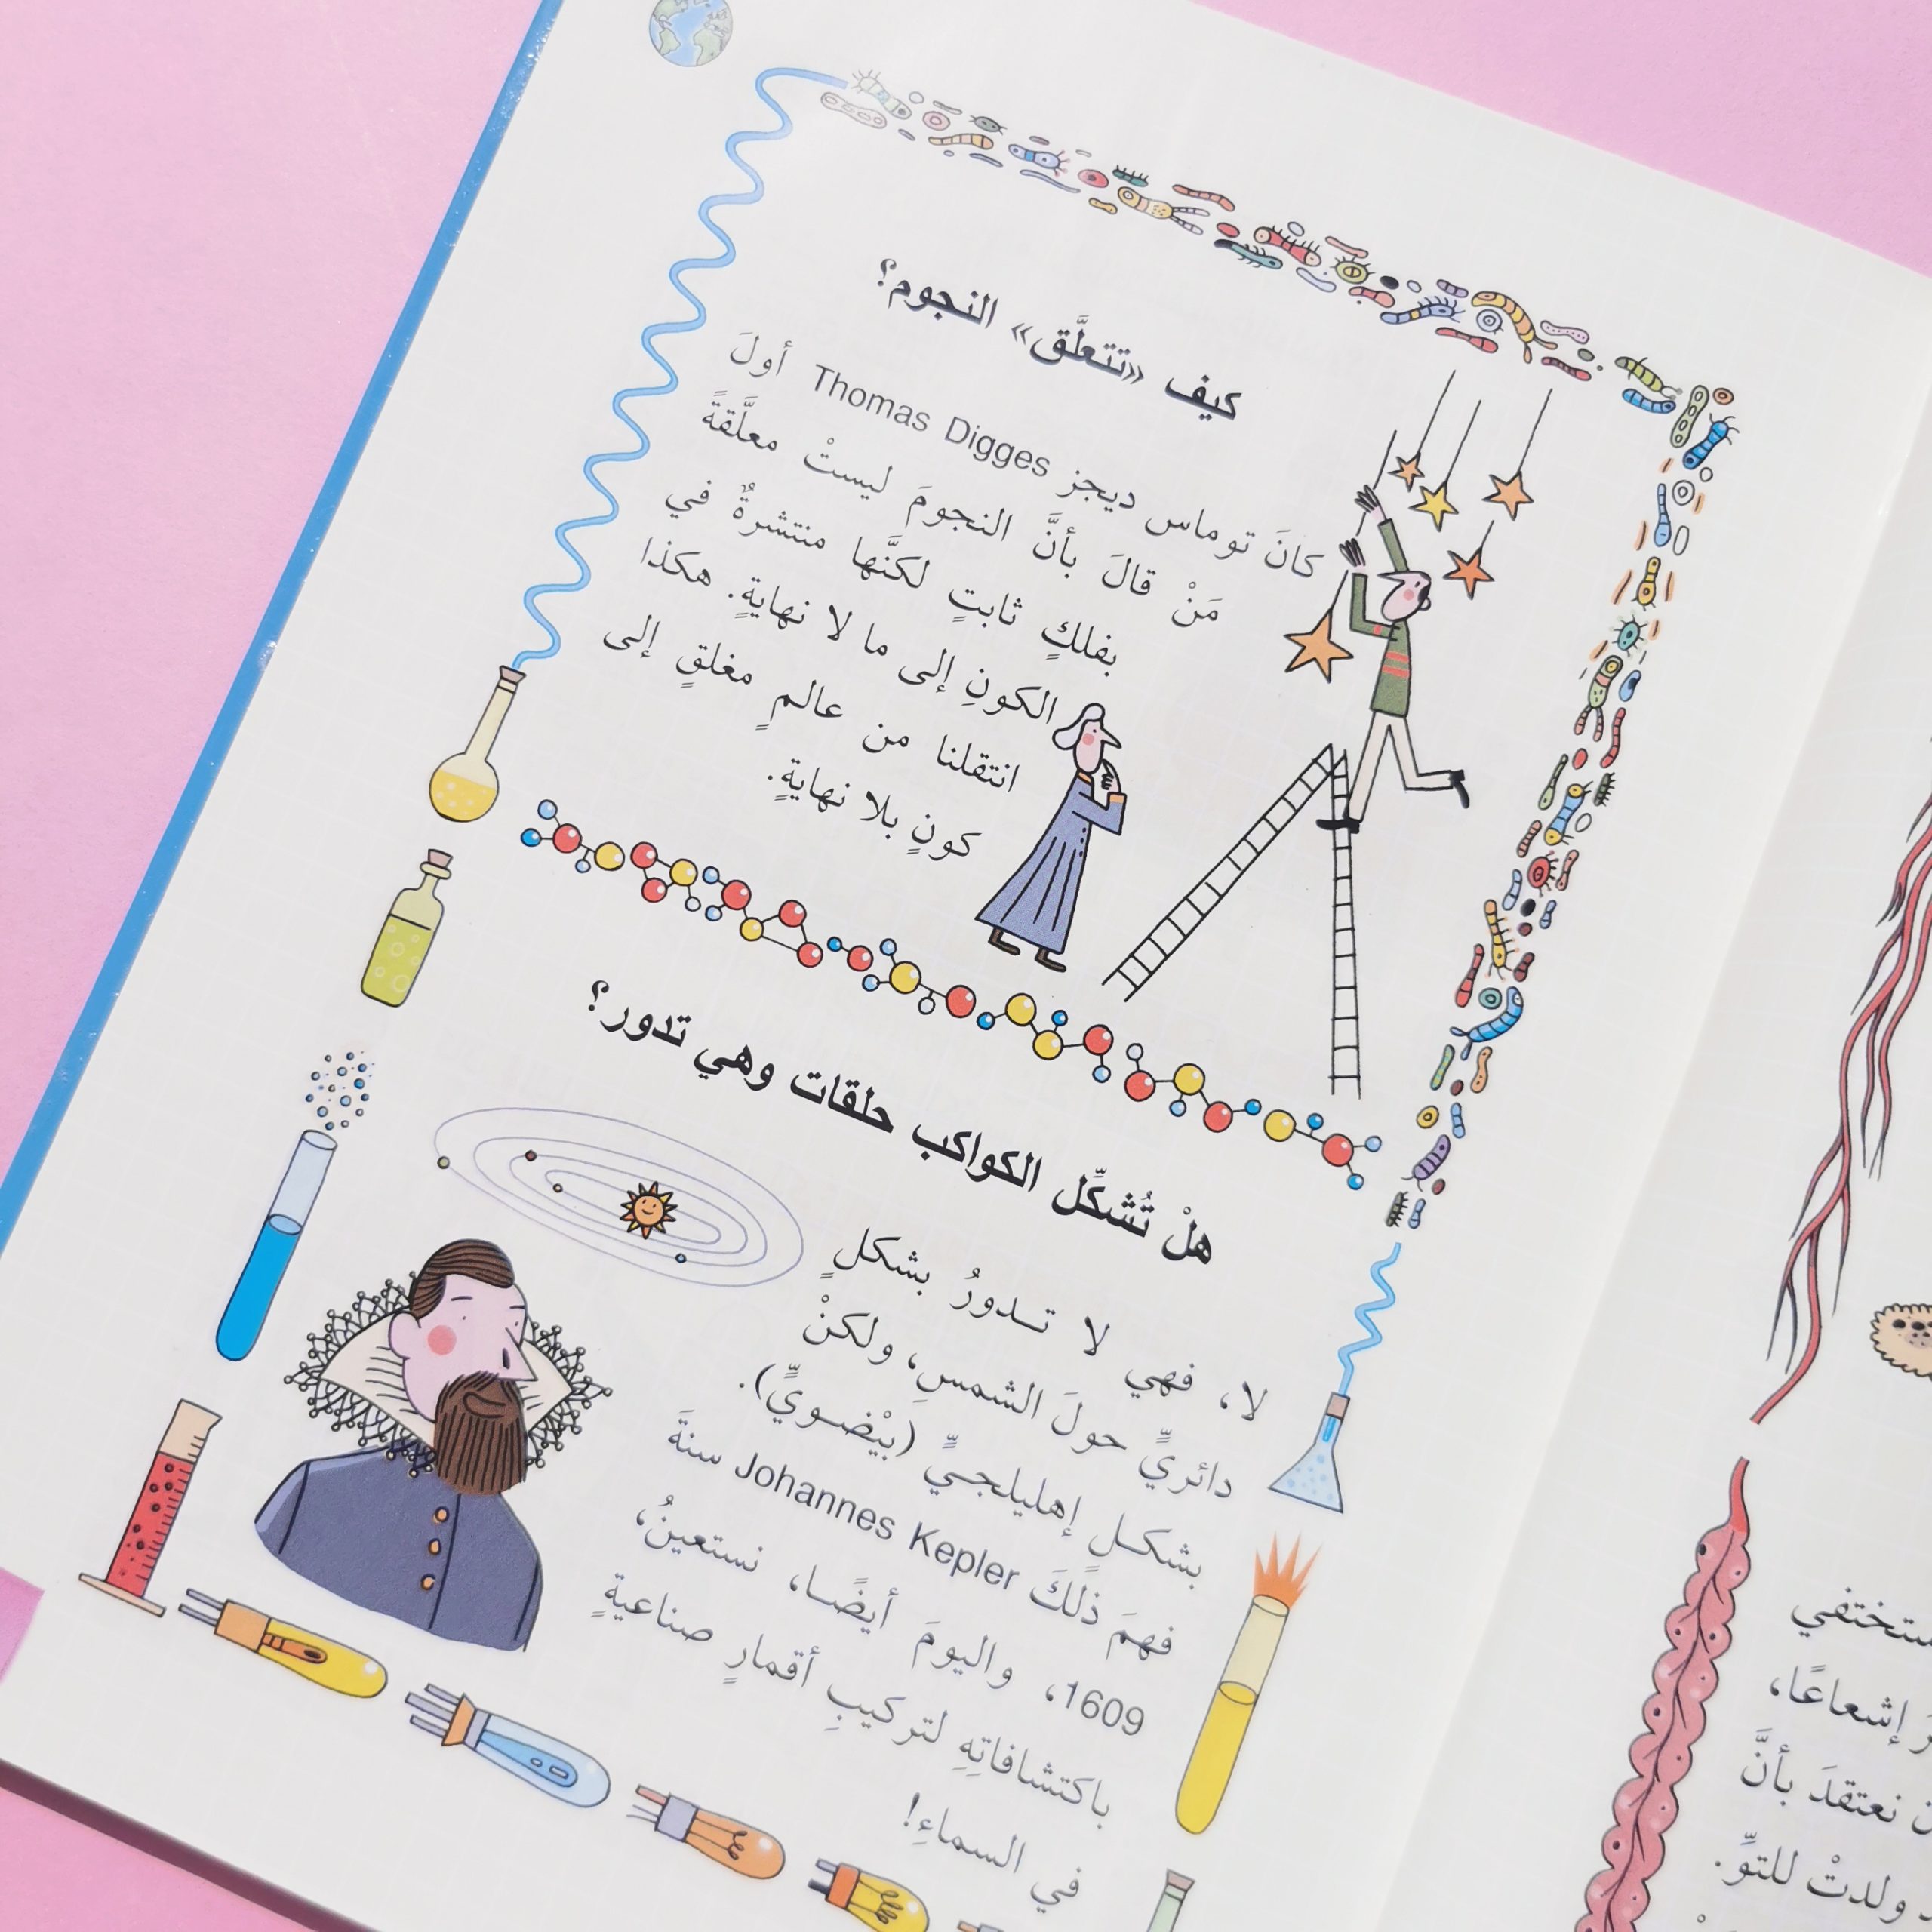 كيف «تتعلَّق» النجوم؟
كانَ توماس ديجز Thomas Digges أولَ
مَنْ قالَ بأنَّ النجومَ ليستْ معلَّقةً
بفلكٍ ثابتٍ لكنَّها منتشرةٌ في
الكونِ إلى ما لا نهايةٍ. هكذا
انتقلنا من عالمٍ مغلقٍ إلى
كونٍ بلا نهايةٍ.
هلْ تُشكِّل الكواكب حلقات وهي تدور؟
لا، فهي لا تـدورُ بشكلٍ
دائريٍّ حولَ الشمسِ، ولكنْ
بشكـلٍ إهليلجـيٍّ (بيْضـويٍّ).
فهمَ ذٰلكَ Johannes Kepler سنةَ
1609، واليومَ أيضًـا، نستعينُ،
باكتشافاتِهِ لتركيبِ أقمارٍ صناعيةٍ
في السماءِ!
ستختفي
إشعاعًا،
نعتقدَ بأنَّ
ولدتْ للتوِّ.